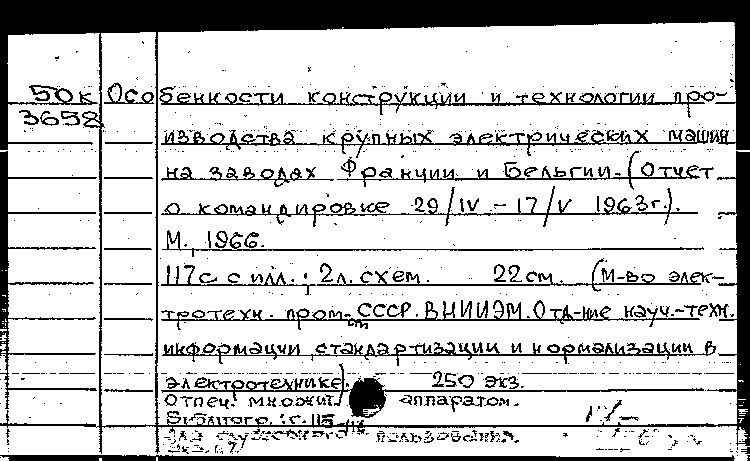 50к Особенности конструкции и технологии про-
3652
изводства крупных электрических машин
на заводах Франции и Бельгии. (Отчет
о командировке 29/IV - 17/V 1963г.).
М., 1966.
117с. с илл.; 2л. схем. 22см. (М-во элек-
тротехн. пром-сти СССР. ВНИИЭМ. Отд-ние науч.-техн.
информации, стандартизации и нормализации в
электротехнике). 250 экз.
Отпеч. множит. аппаратом.
Библиогр.: с. 115-
Для служебного пользования.